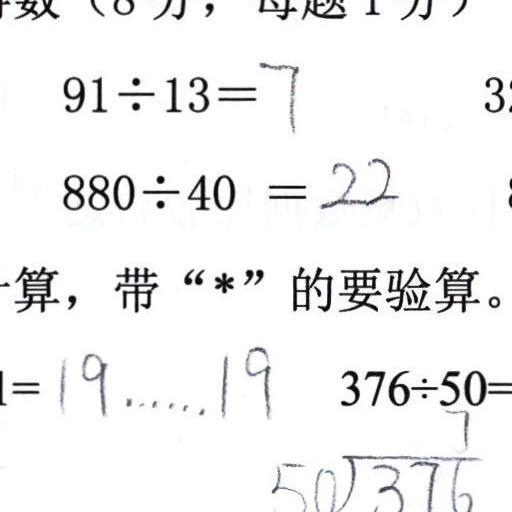 数（8分，每题1分）
91÷13=7
880÷40 =22
算，带“*”的要验算。
1=19……19 376÷50=
7
50)376